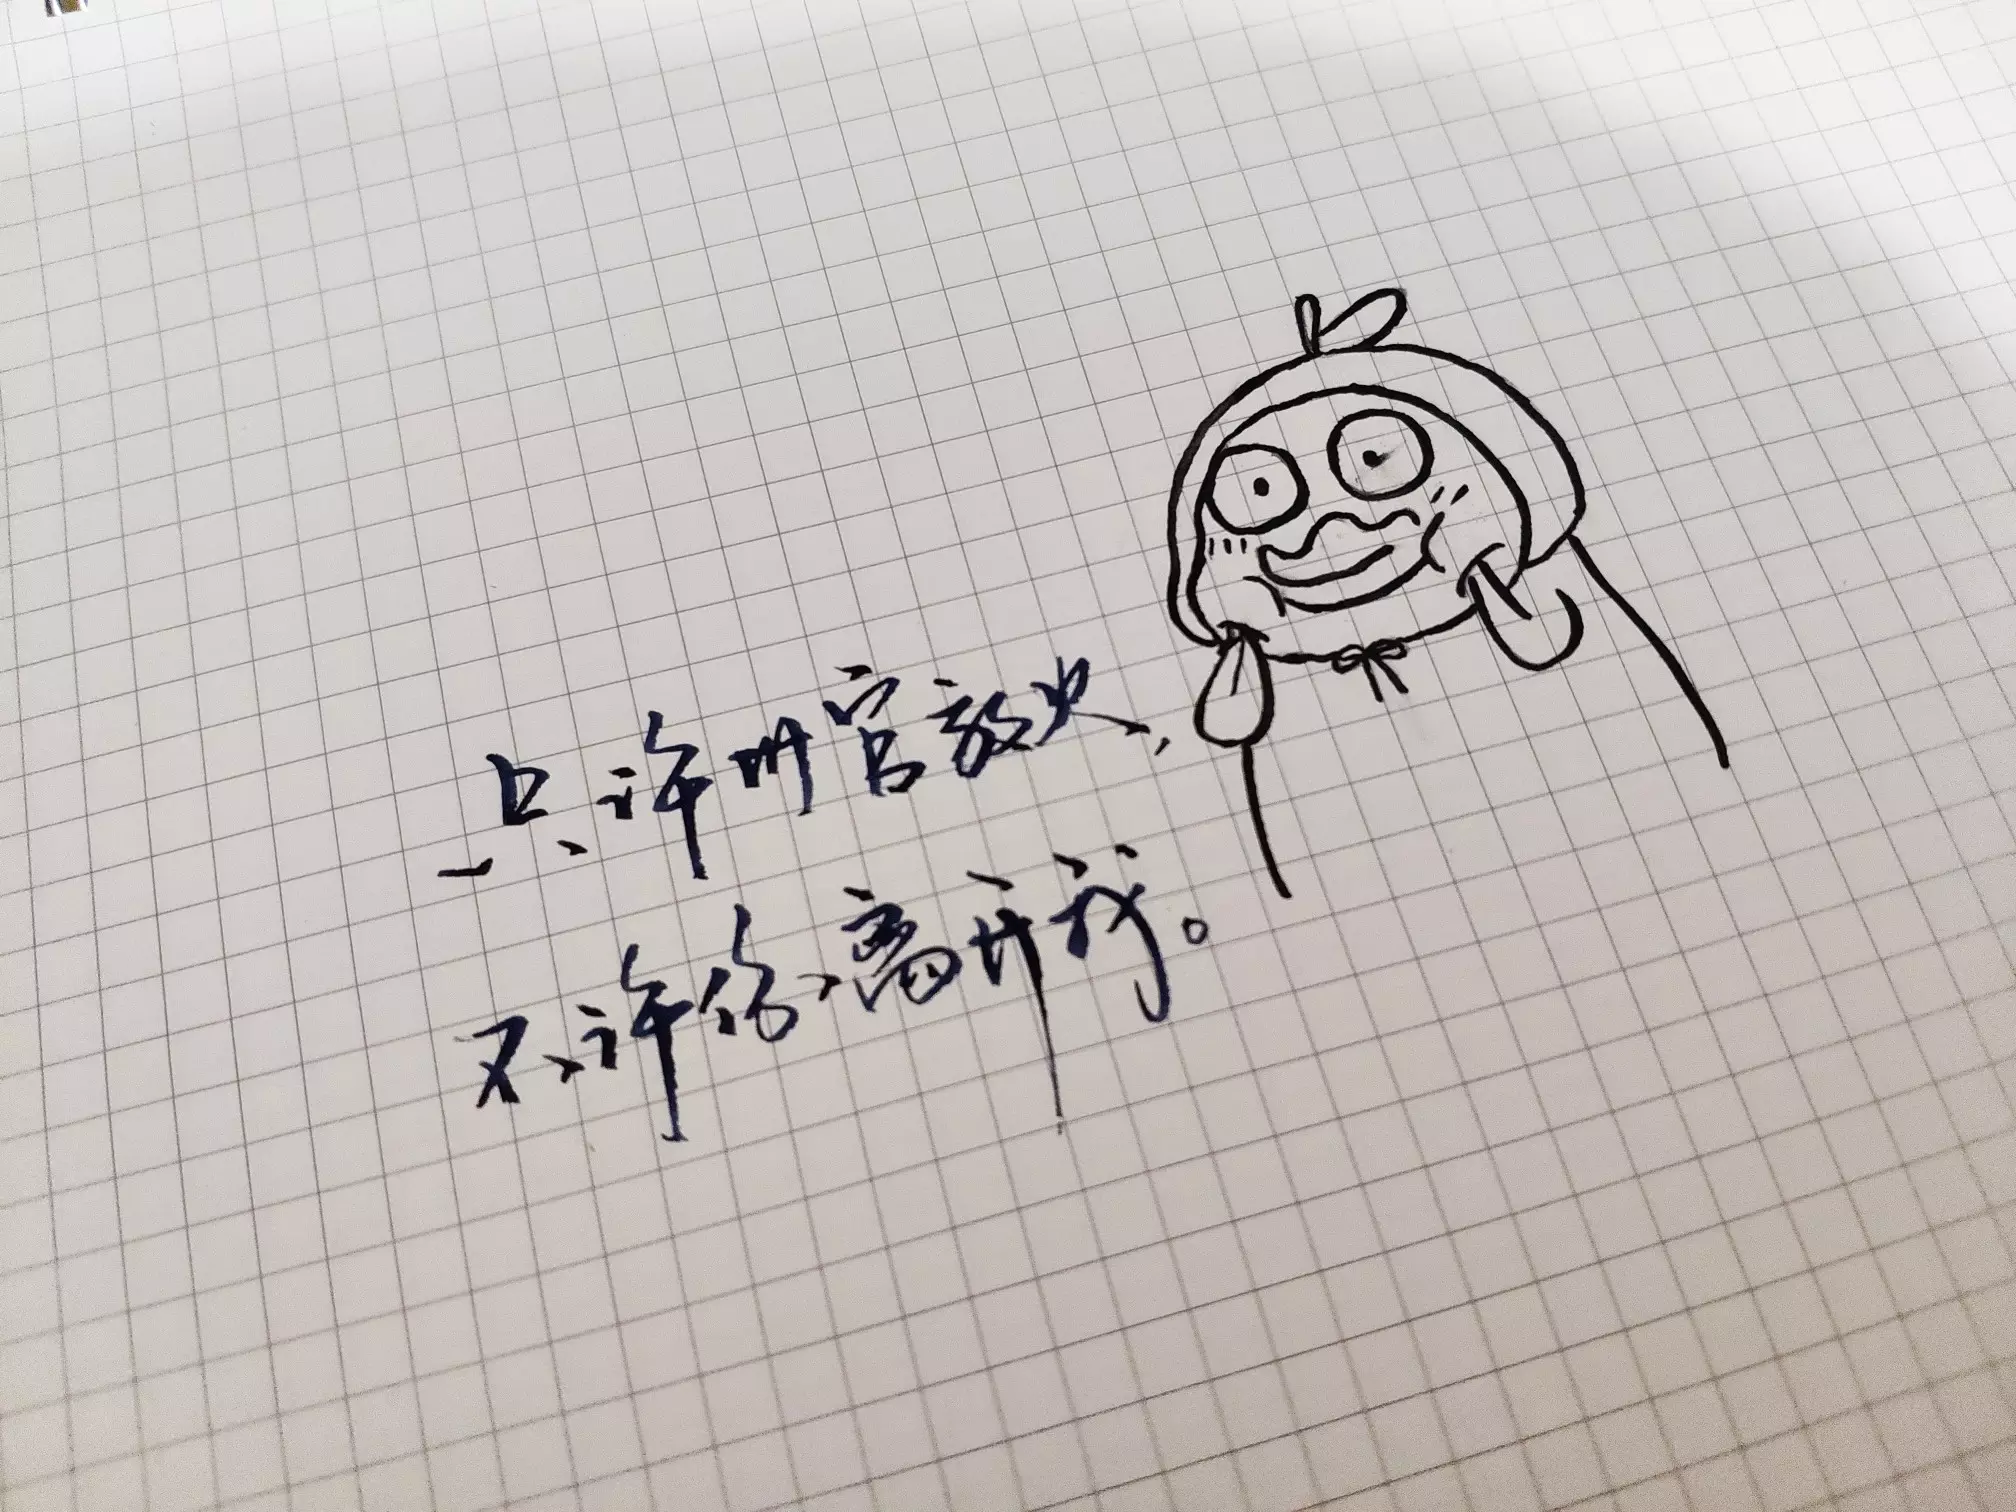 只许州官放火,
不许你离开我。